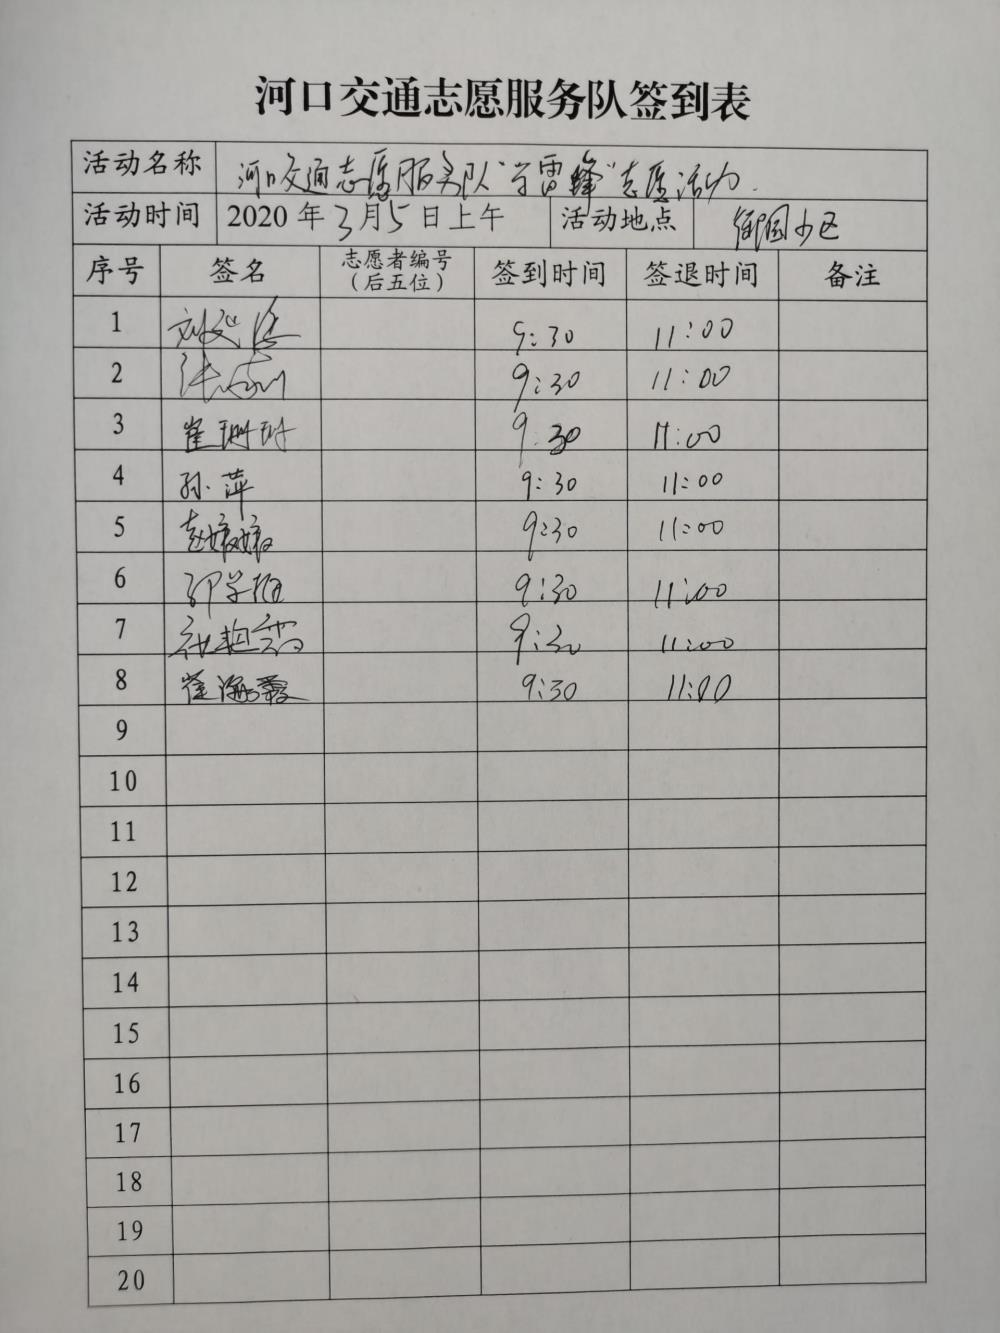 河口交通志愿服务队签到表
活动名称 河口交通志愿服务队"学雷锋"志愿活动.
活动时间 2020年3月5日上午 活动地点 御园小区
序号 签名 志愿者编号（后五位） 签到时间 签退时间 备注
1 刘 9:30 11:00
2 张 9:30 11:00
3 崔珊珊 9:30 11:00
4 孙萍 9:30 11:00
5 赵媛媛 9:30 11:00
6 9:30 11:00
7 9:30 11:00
8 崔海霞 9:30 11:00
9
10
11
12
13
14
15
16
17
18
19
20